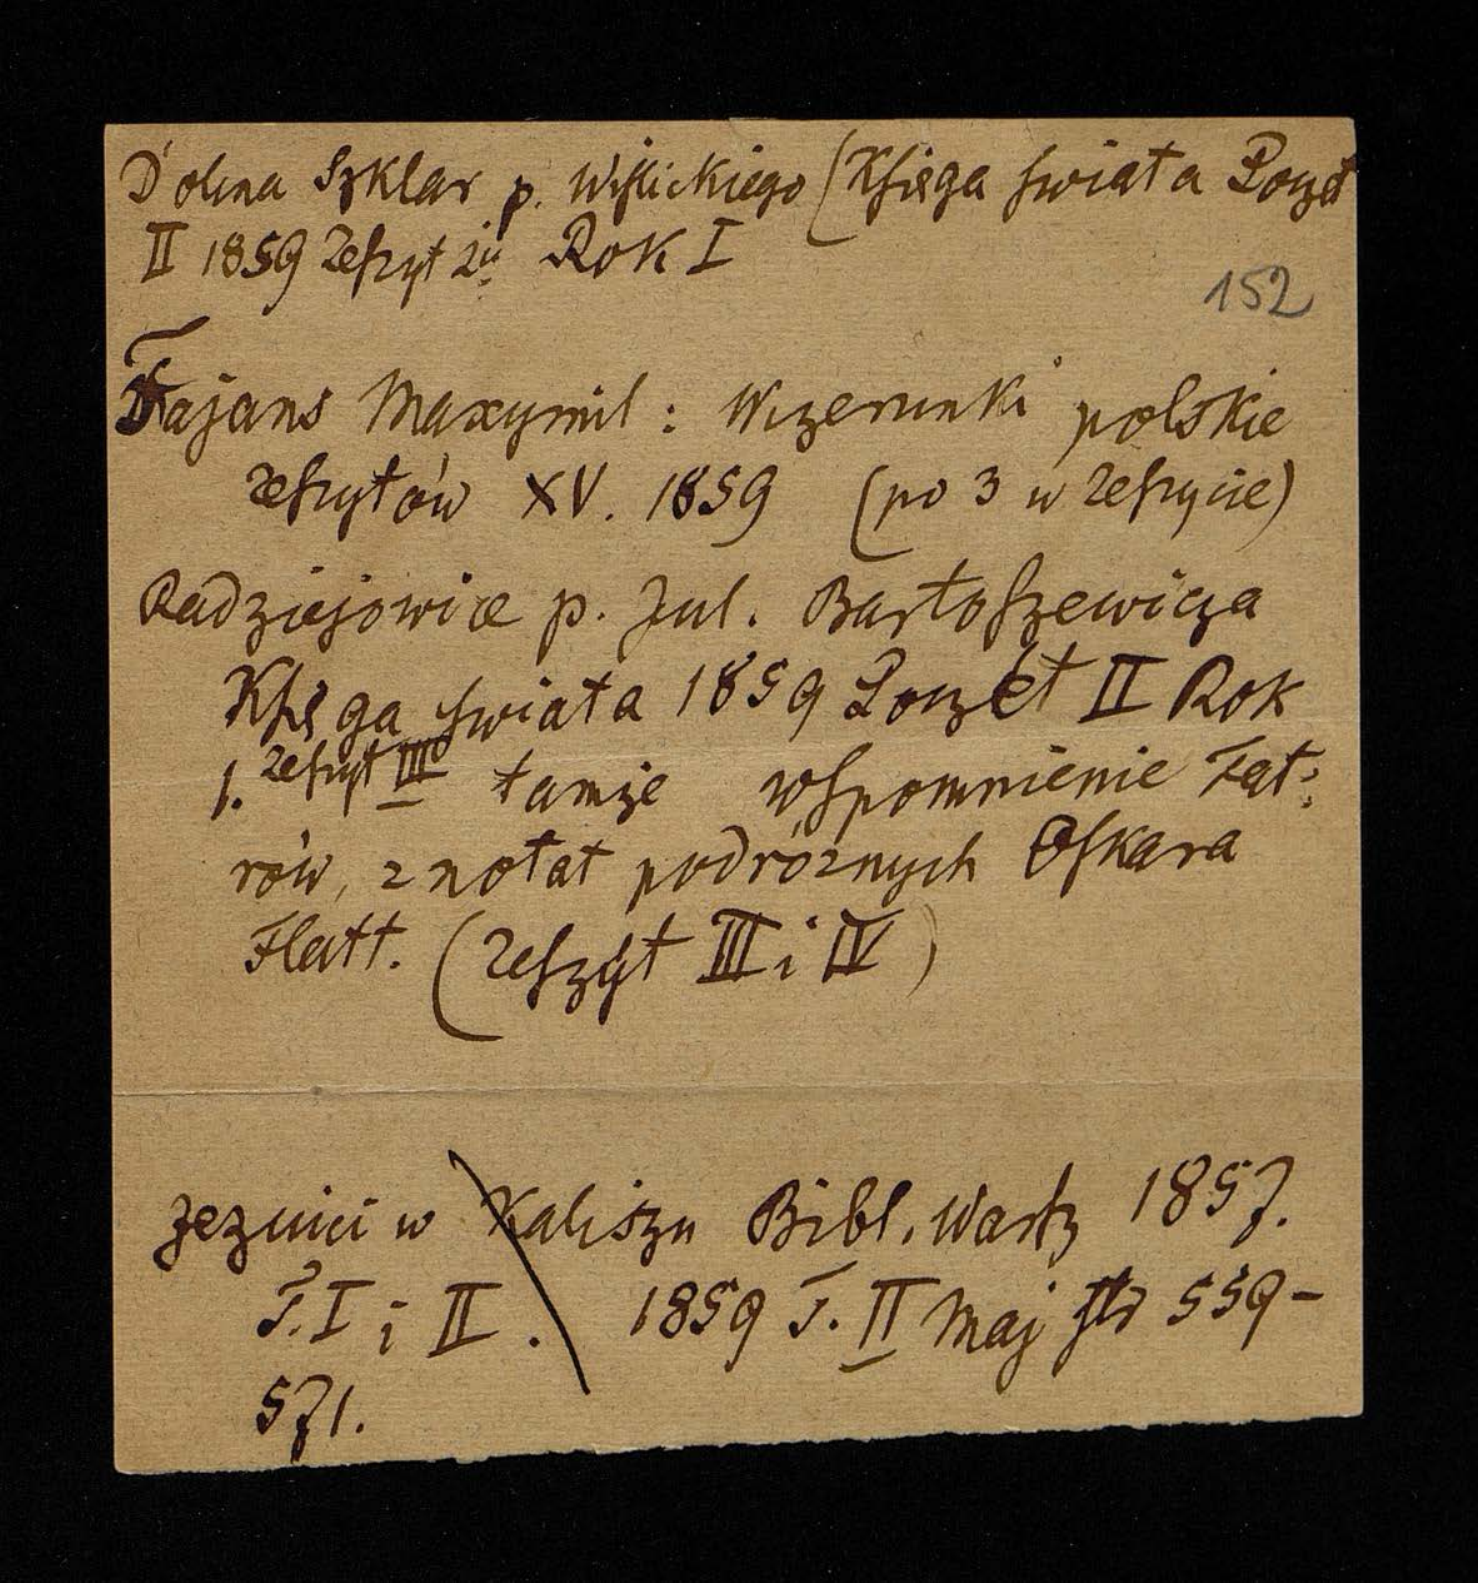 Dolina Szklar p. Wiślickiego (Księga świata Poczet
II 1859 Zeszyt 2gi Rok I
152
Fajans Maxymil: Wizerunki polskie
zeszytów XV. 1859 (po 3 w zeszycie)
Radziejowice p. Jul. Bartoszewicza
Księga świata 1859 Poczet II Rok
1. zeszyt III tamże wspomnienie Tat:
rów, z notat podróżnych Oskara
Flatt. (Zeszyt III i IV)
Jezuici w Kaliszu Bibl. Warsz 1857.
T. I i II. 1859 T. II Maj str 559-
571.